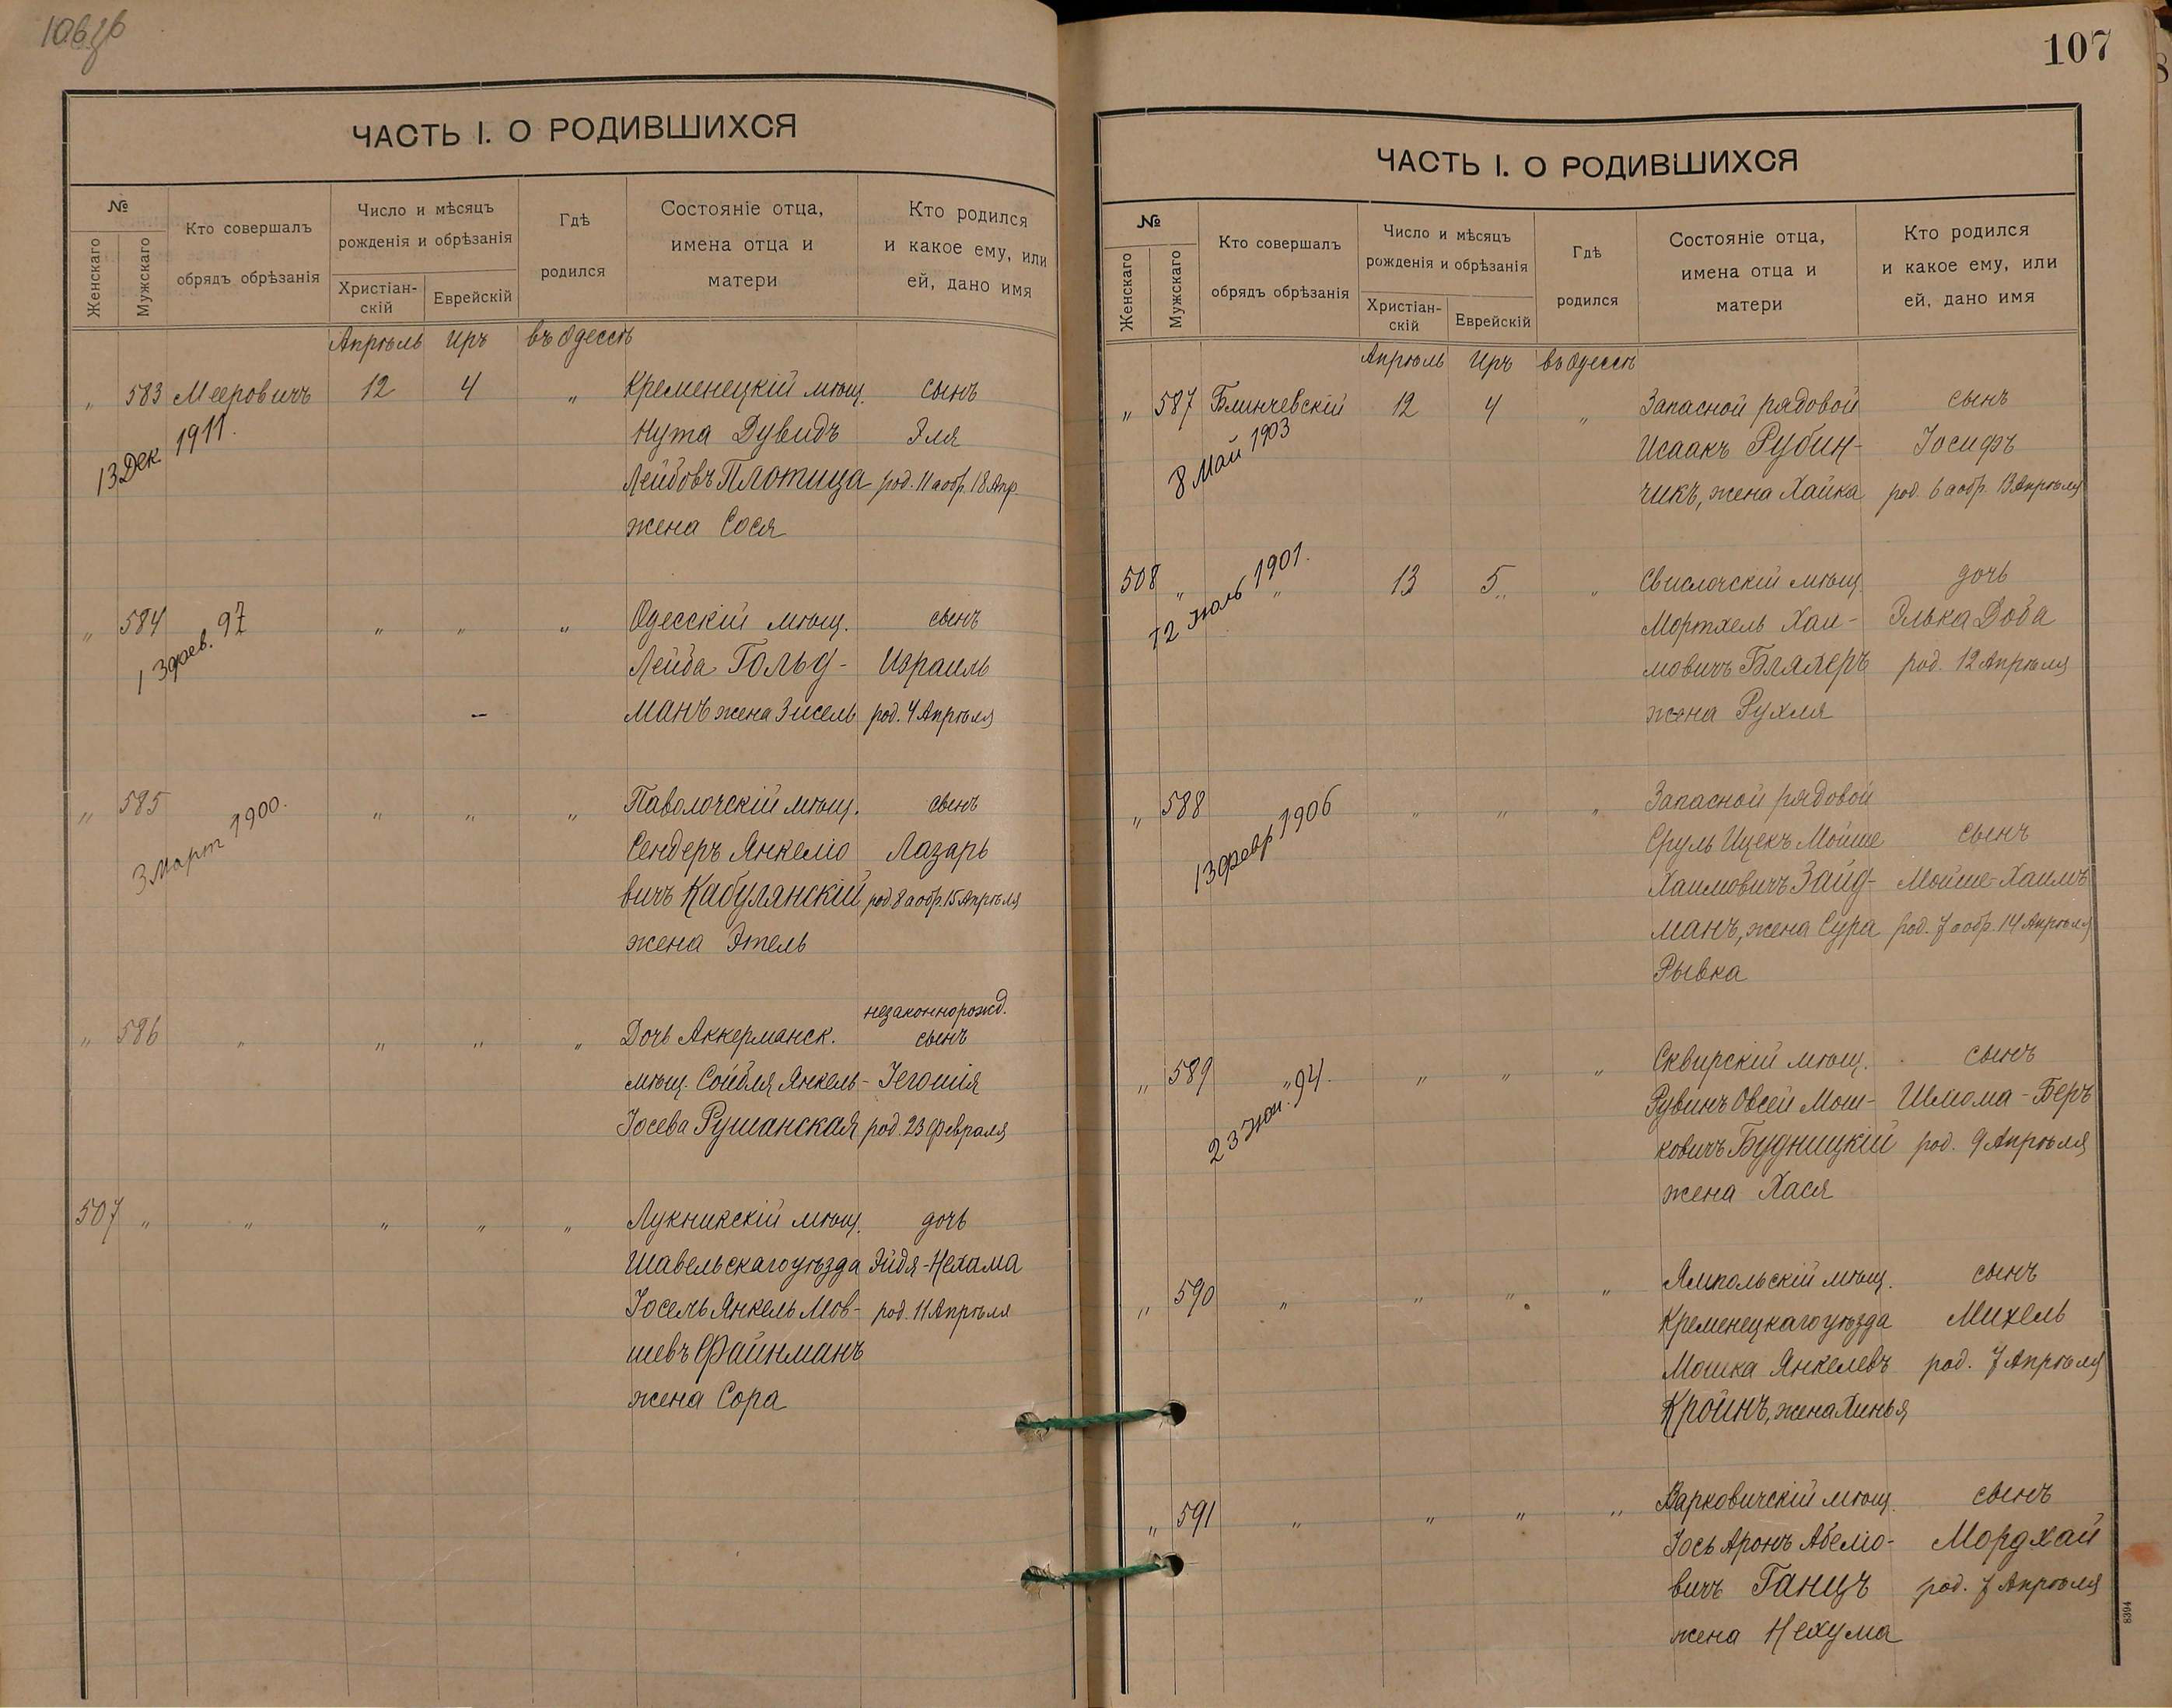 ЧАСТЬ I. О РОДИВШИХСЯ
№
Женскаго
Мужскаго
Кто совершалъ
обрядъ обрѣзанія
Число и мѣсяцъ
рожденія и обрѣзанія
Христіан-
скій
Еврейскій
Гдѣ
родился
Состояніе отца,
имена отца и
матери
Кто родился
и какое ему, или
ей, дано имя
Апрѣль Иръ въ Одессѣ
„ 583 Мееровичъ 12 4 „ Кременецкій мѣщ. сынъ
13 Дек. 1911.
Нута Дувидъ Эля
Лейбовъ Плотица род. 11 а обр. 18 Апр.
жена Сося
„ 584 „ „ „ Одесскій мѣщ. сынъ
13 фев. 97
Лейба Гольд- Израиль
манъ жена Зисель род. 4 Апрѣля
„ 585 „ „ „ Паволочскій мѣщ. сынъ
3 Март 1900.
Сендеръ Янкеліо Лазарь
вичъ Кабулянскій род 8 а обр. 15 Апрѣля
жена Этель
незаконнорожд.
„ 586 „ „ „ „ Дочь Аккерманск. сынъ
мѣщ. Сойбля Янкель- Іегошія
Іосева Рушанская род. 23 февраля
507 „ „ „ „ „ Лукникскій мѣщ. дочь
Шавельскаго уѣзда Эйдя-Нехама
Іосель Янкель Мов- род. 11 Апрѣля
шевъ Файнманъ
жена Сора
107
ЧАСТЬ I. О РОДИВШИХСЯ
№
Женскаго
Мужскаго
Кто совершалъ
обрядъ обрѣзанія
Число и мѣсяцъ
рожденія и обрѣзанія
Христіан-
скій
Еврейскій
Гдѣ
родился
Состояніе отца,
имена отца и
матери
Кто родился
и какое ему, или
ей, дано имя
Апрѣль Иръ въ Одессѣ
„ 587 Блинчевскій 12 4 „ Запасной рядовой сынъ
8 Май 1903
Исаакъ Рубин- Іосифъ
чикъ, жена Хайка род. 6 а обр. 13 Апрѣля
508 „ „ 13 5 „ Свислочскій мѣщ. дочь
12 Июль 1901.
Мортхель Хаи- Элька Доба
мовичъ Бляхеръ род. 12 Апрѣля
жена Рухля
„ 588 „ „ „ Запасной рядовой
13 февр 1906
Сруль Ицекъ Мойше сынъ
Хаимовичъ Зайд- Мойше-Хаимъ
манъ, жена Сура род. 7 а обр. 14 Апрѣля
Рывка
„ 589 „ „ „ „ Сквирскій мѣщ. сынъ
94.
Рувинъ Овсей Мош- Шлома-Беръ
ковичъ Будницкій род. 9 Апрѣля
жена Хася
„ 590 „ „ „ „ Ямпольскій мѣщ. сынъ
Кременецкаго уѣзда Михель
Мошка Янкелевъ род. 7 Апрѣля
Кройнъ, жена Хинья
„ 591 „ „ „ „ Варковичскій мѣщ. сынъ
Іось Аронъ Абеліо- Мордхай
вичъ Ганцъ род. 7 Апрѣля
жена Нехума
8394